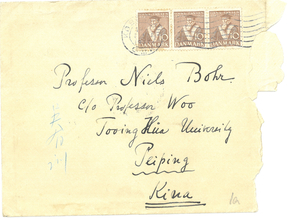 10 10 10
DANMARK DANMARK DANMARK
Professor Niels Bohr
c/o Professor Woo
Tooing Hua University
Peiping
Kina